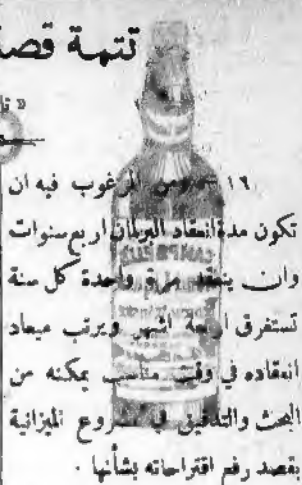 تتمة قصة
١٦ ومن المرغوب فيه ان
تكون مدة انعقاد البرلمان اربع سنوات
وان ينعقد مرة واحدة كل سنة
تستغرق اربعة اشهر ويرتب ميعاد
انعقاده في وقت مناسب يمكنه من
البحث والتدقيق في مشروع الميزانية
بقصد رفع اقتراحاته بشأنها .